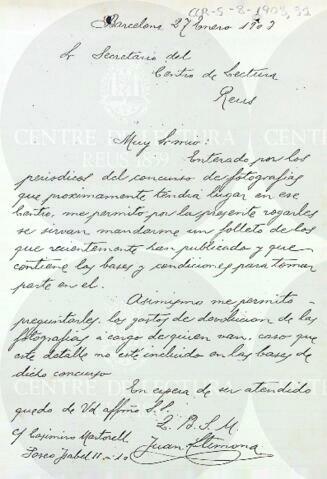 AR-S-8-1903,31
Barcelona 27 Enero 1903
Sr Secretario del
Centro de Lectura
Reus
CENTRE DE LECTURA
REUS 1859
Muy Sr mio:
Enterado por los
periodicos del concurso de fotografias
que proximamente tendra lugar en ese
Centro, me permito por la presente rogarles
se sirvan mandarme un folleto de los
que recientemente han publicado y que
contiene las bases y condiciones para tomar
parte en el.
Asimismo me permito
preguntarles los gastos de devolucion de las
fotografias á cargo de quien van, caso que
este detalle no esté incluido en las bases de
dicho concurso
En espera de ser atendido
quedo de Vd affmo S.S.
Q. B. S. M.
Juan
c/ Casimiro Martorell
Paseo Isabel II